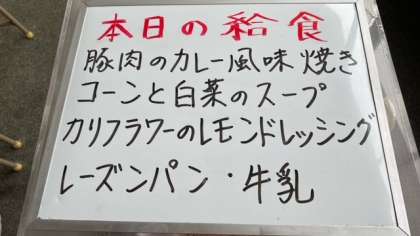 本日の給食
豚肉のカレー風味焼き
コーンと白菜のスープ
カリフラワーのレモンドレッシング
レーズンパン・牛乳